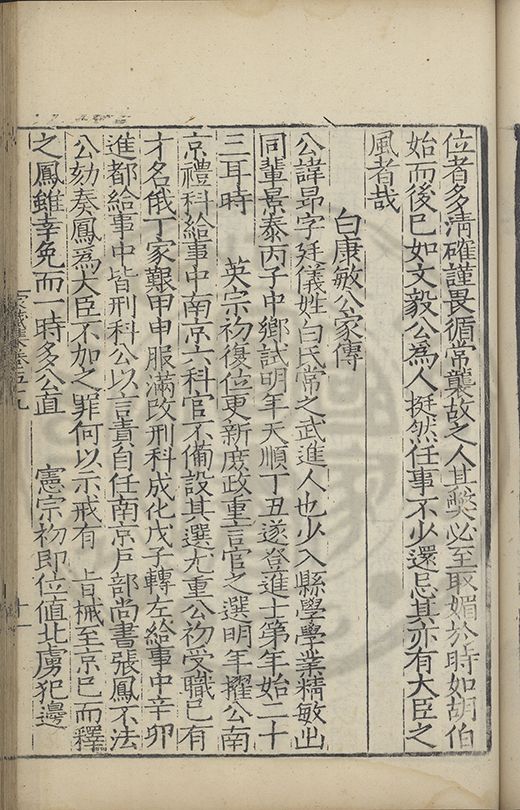 位者多清確謹畏循常襲故之人其弊必至取媚於時如胡伯
始而後已如文毅公為人挺然任事不少還忌其亦有大臣之
風者哉
白康敏公家傳
公諱昂字廷儀姓白氏常之武進人也少入縣學學業精敏出
同輩景泰丙子中鄉試明年天順丁丑遂登進士第年始二十
三耳時 英宗初復位更新庶政重言官之選明年擢公南
京禮科給事中南京六科官不備設其選尤重公初受職已有
才名俄丁家艱甲申服滿改刑科成化戊子轉左給事中辛卯
進都給事中皆刑科公以言責自任南京戶部尚書張鳳不法
公劾奏鳳為大臣不加之罪何以示戒有 旨械至京已而釋
之鳳雖幸免而一時多公直 憲宗初即位值北虜犯邊